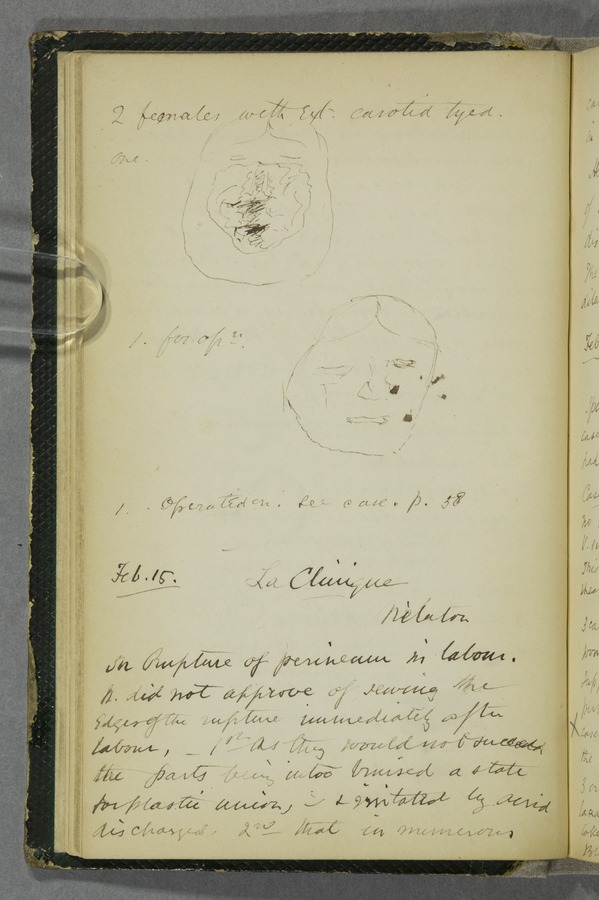 2 females with Ext. carotid tyed.
one.
1. for opn.
1. Operated on. See case. p. 38
Feb. 15. La Clinique
Nélaton
On Rupture of perineum in labour.
N. did not approve of sewing the
Edges of the rupture immediately after
labour, _ 1st As they would not succeed
the parts being in too bruised a state
for plastic union, & irritated by acrid
discharges. 2nd that in numerous